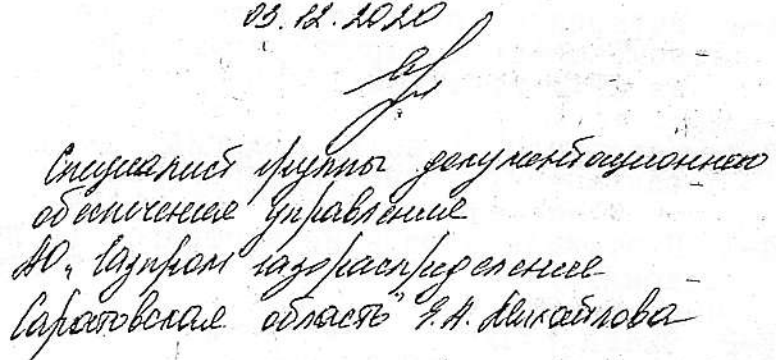 03.12.2020
Специалист группы документационного
обеспечения управления
АО "Газпром газораспределение
Саратовская область" Е.А. Михайлова